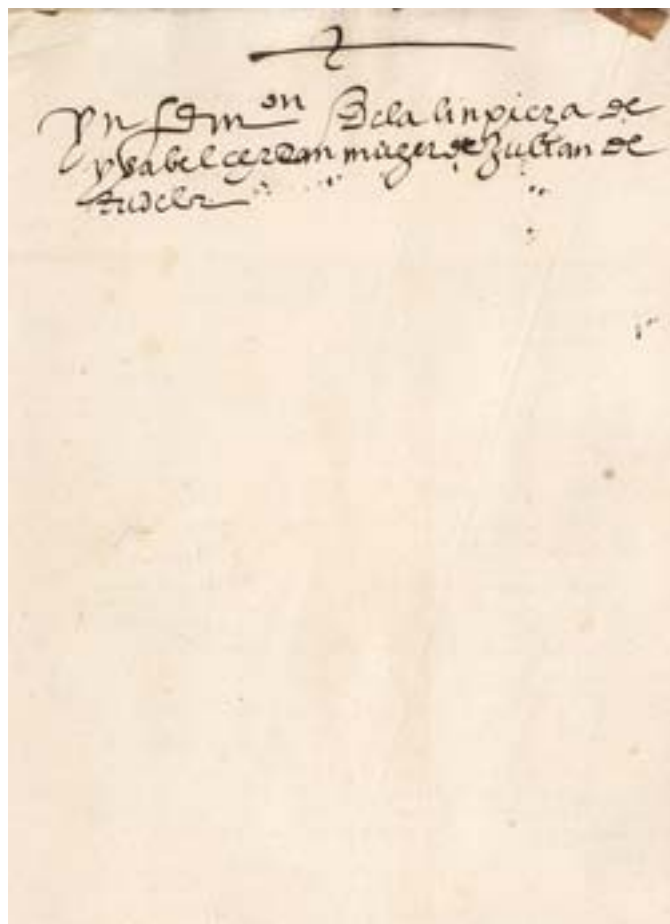 Ynformon de la linpieza de
ysabel cerdan muger de Julian de
tudela